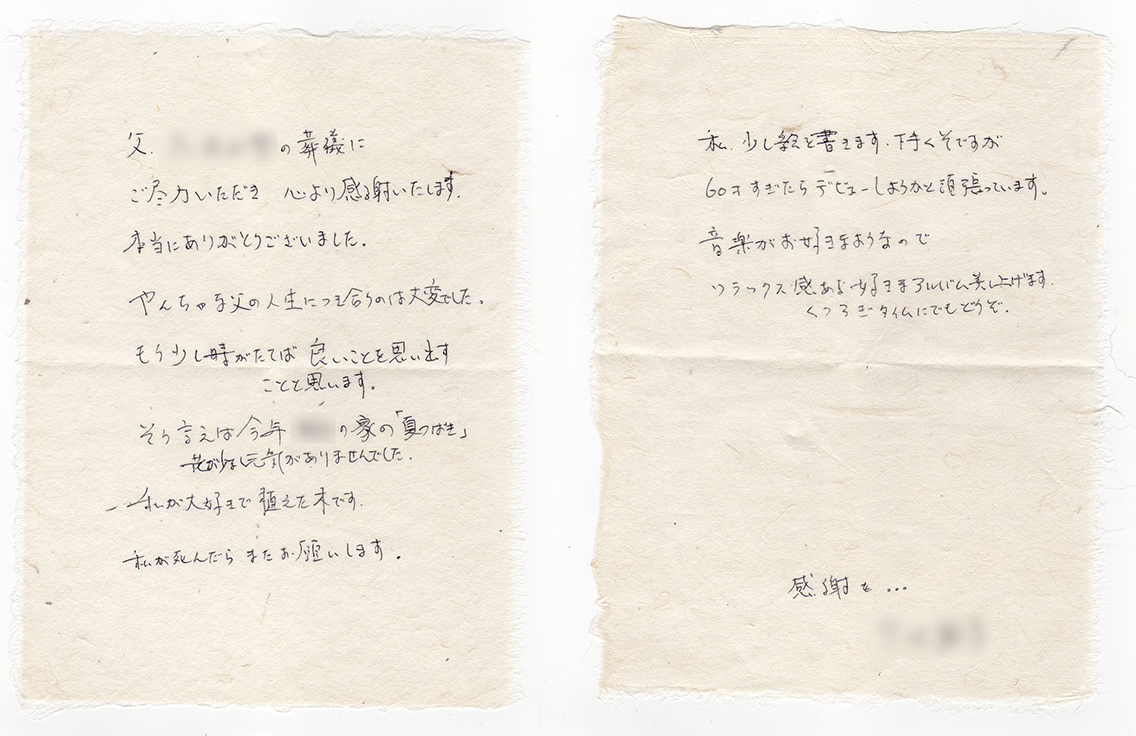 父、の葬儀に
ご尽力いただき 心より感謝いたします。
本当にありがとうございました。
やんちゃな父の人生につき合うのは大変でした。
もう少し時がたてば 良いことを思い出す
ことと思います。
そう言えば今年 の家の「夏つばき」
花が少し元気がありませんでした。
私が大好きで植えた木です。
私が死んだら またお願いします。
私、少し絵を書きます。下手くそですが
60才すぎたらデビューしようかと頑張っています。
音楽がお好きなようなので
リラックス感ある好きなアルバム差し上げます。
くつろぎタイムにでもどうぞ。
感謝を…